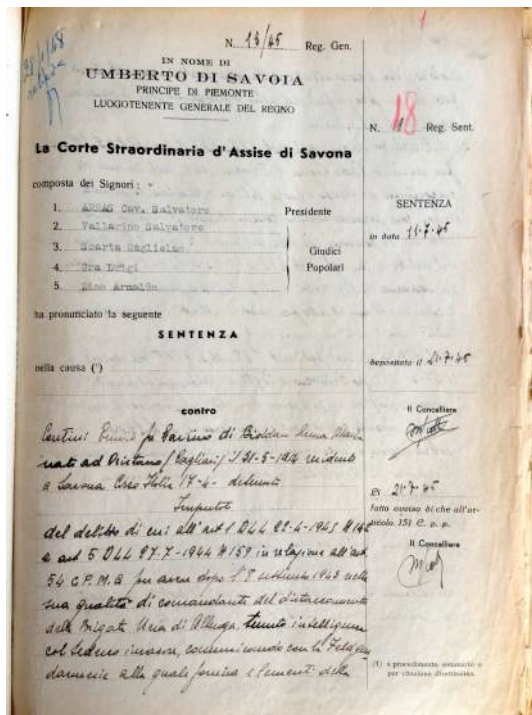 N. 13/45 Reg. Gen.
IN NOME DI
UMBERTO DI SAVOIA
PRINCIPE DI PIEMONTE
LUOGOTENENTE GENERALE DEL REGNO
N. 18 Reg. Sent.
La Corte Straordinaria d'Assise di Savona
composta dei Signori:
1. Cav. Salvatore Presidente
2. Vallarino Salvatore
3. Scarta Guglielmo
4. Luigi
5.
Giudici
Popolari
SENTENZA
in data 11-7-45
ha pronunciato la seguente
SENTENZA
nella causa (¹)
depositata il 21-7-45
contro
Il Cancelliere
nato ad Oristano (Cagliari) il 31-5-1914 residente
a Savona Corso Italia 17-4- detenuto
Imputato
del delitto di cui all'art 1 DLL 22-4-1945 N 142
e art 5 DLL 27-7-1944 N 159 in relazione all'art.
54 C.P.M.G per avere dopo l'8 settembre 1943 nella
sua qualità di comandante del distaccamento
della Brigata Nera di Albenga, tenuto intelligenza
col tedesco invasore, comunicando con la Feldgen
darmerie alla quale forniva elementi della
El 21-7-45
fatto avviso di che all'ar-
ticolo 151 C. p. p.
Il Cancelliere
(1) a procedimento sommario o
per citazione direttissima.